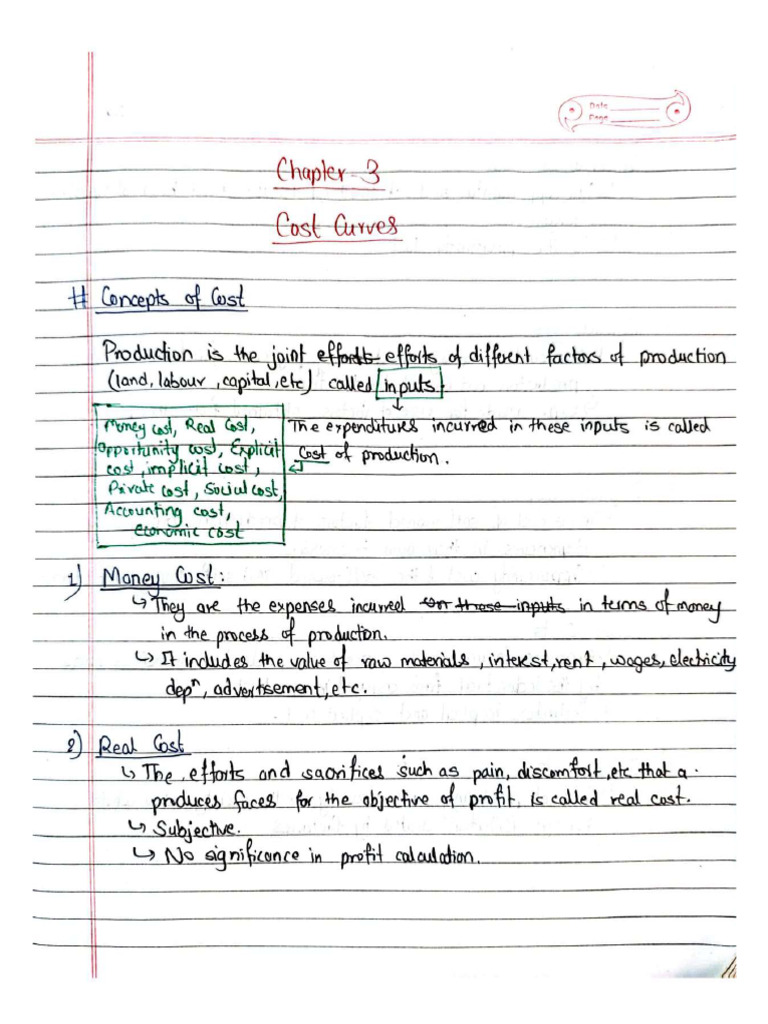 Date
Page
Chapter-3
Cost Curves
# Concepts of Cost
Production is the joint efforts efforts of different factors of production
(land, labour, capital, etc) called inputs.
Money cost, Real Cost,
Opportunity cost, Explicit
cost, implicit cost,
Private cost, Social cost,
Accounting cost,
economic cost
The expenditures incurred in these inputs is called
Cost of production.
1) Money Cost:
↳ They are the expenses incurred on these inputs in terms of money
in the process of production.
↳ It includes the value of raw materials, interest, rent, wages, electricity
depⁿ, advertisement, etc.
2) Real Cost
↳ The efforts and sacrifices such as pain, discomfort, etc that a
produces faces for the objective of profit is called real cost.
↳ Subjective.
↳ No significance in profit calculation.